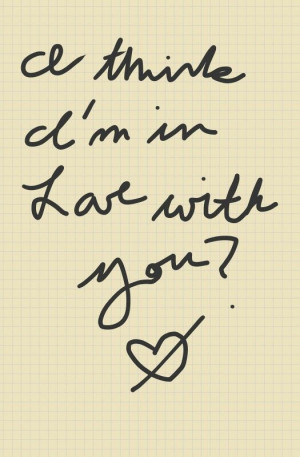 I think
I'm in
Love with
you?